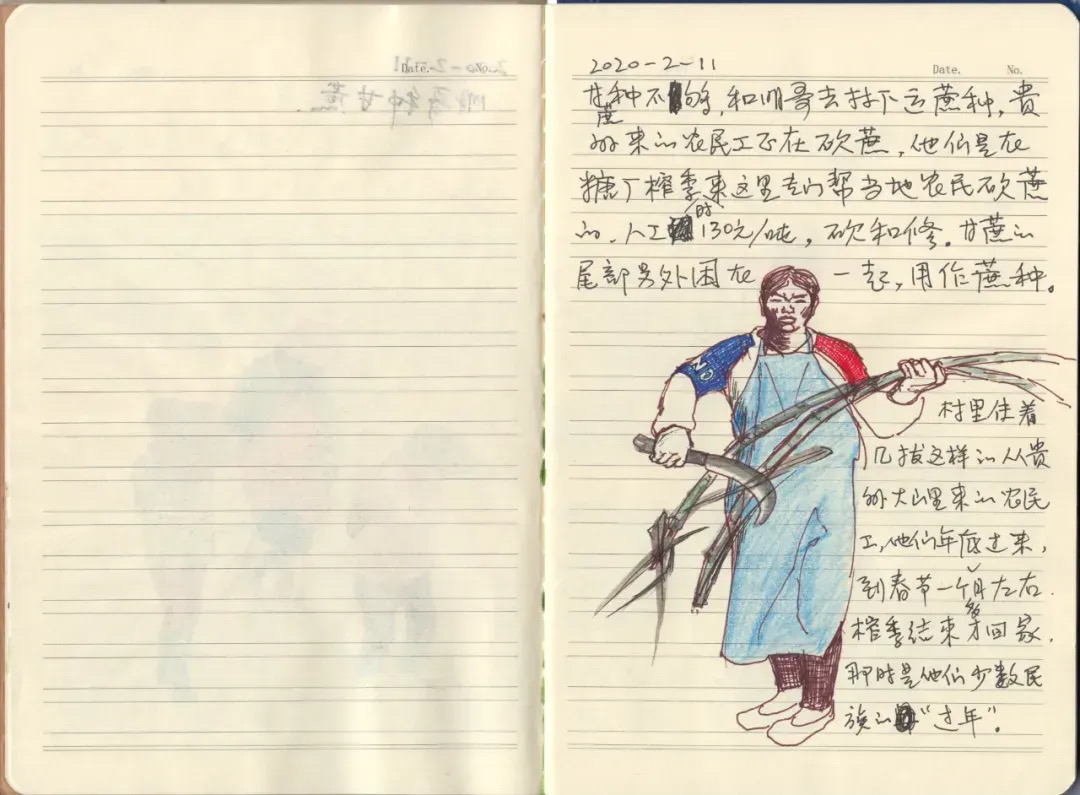 2020-2-11 Date. No.
甘蔗种不够,和明哥去村下运蔗种,贵
州来的农民工正在砍蔗,他们是在
糖厂榨季时来这里专门帮当地农民砍蔗
的.人工130元/吨,砍和修.甘蔗的
尾部另外困在一起,用作蔗种。
村里住着
几拔这样的从贵
州大山里来的农民
工,他们年底过来,
到春节后一个月左右.
榨季结束才回家.
那时是他们少数民
族的"过年".